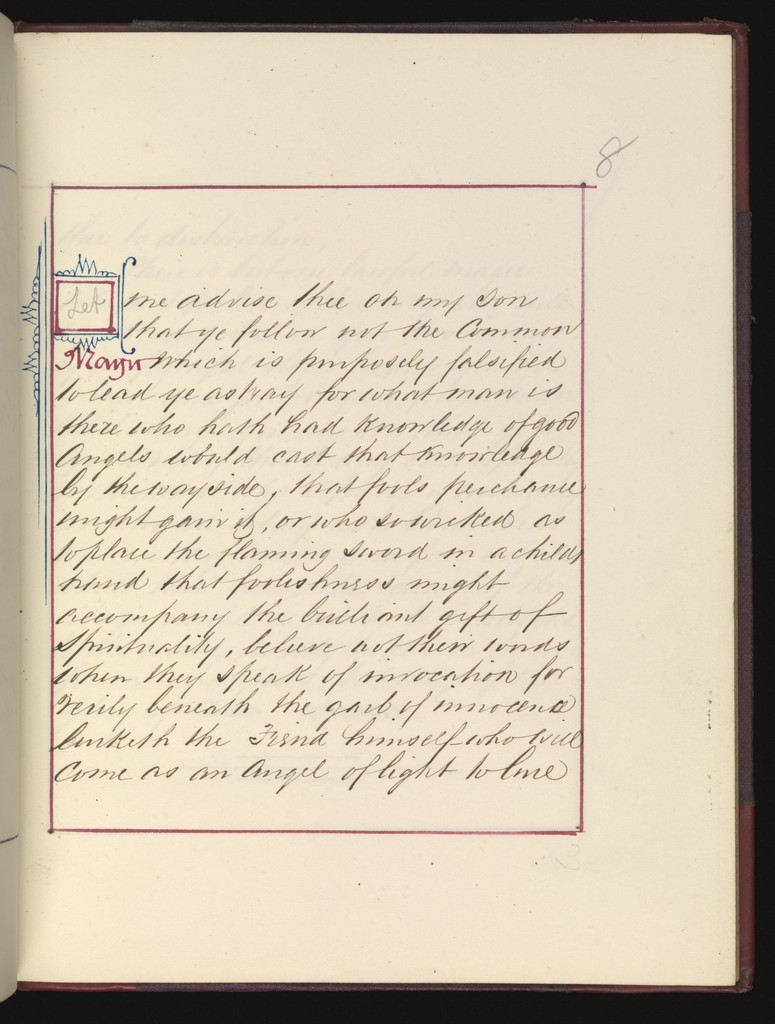 8
Let me advise thee oh my Son
that ye follow not the Common
Magii which is purposely falsified
to lead ye astray for what man is
there who hath had knowledge of good
Angels would cast that knowledge
by the wayside, that fools perchance
might gain it, or who so wicked as
to place the flaming sword in a childs
hand that foolishness might
accompany the brilliant gift of
Spirituality, believe not their words
when they speak of invocation for
verily beneath the garb of innocence
lurketh the Fiend himself who will
come as an Angel of light to lure